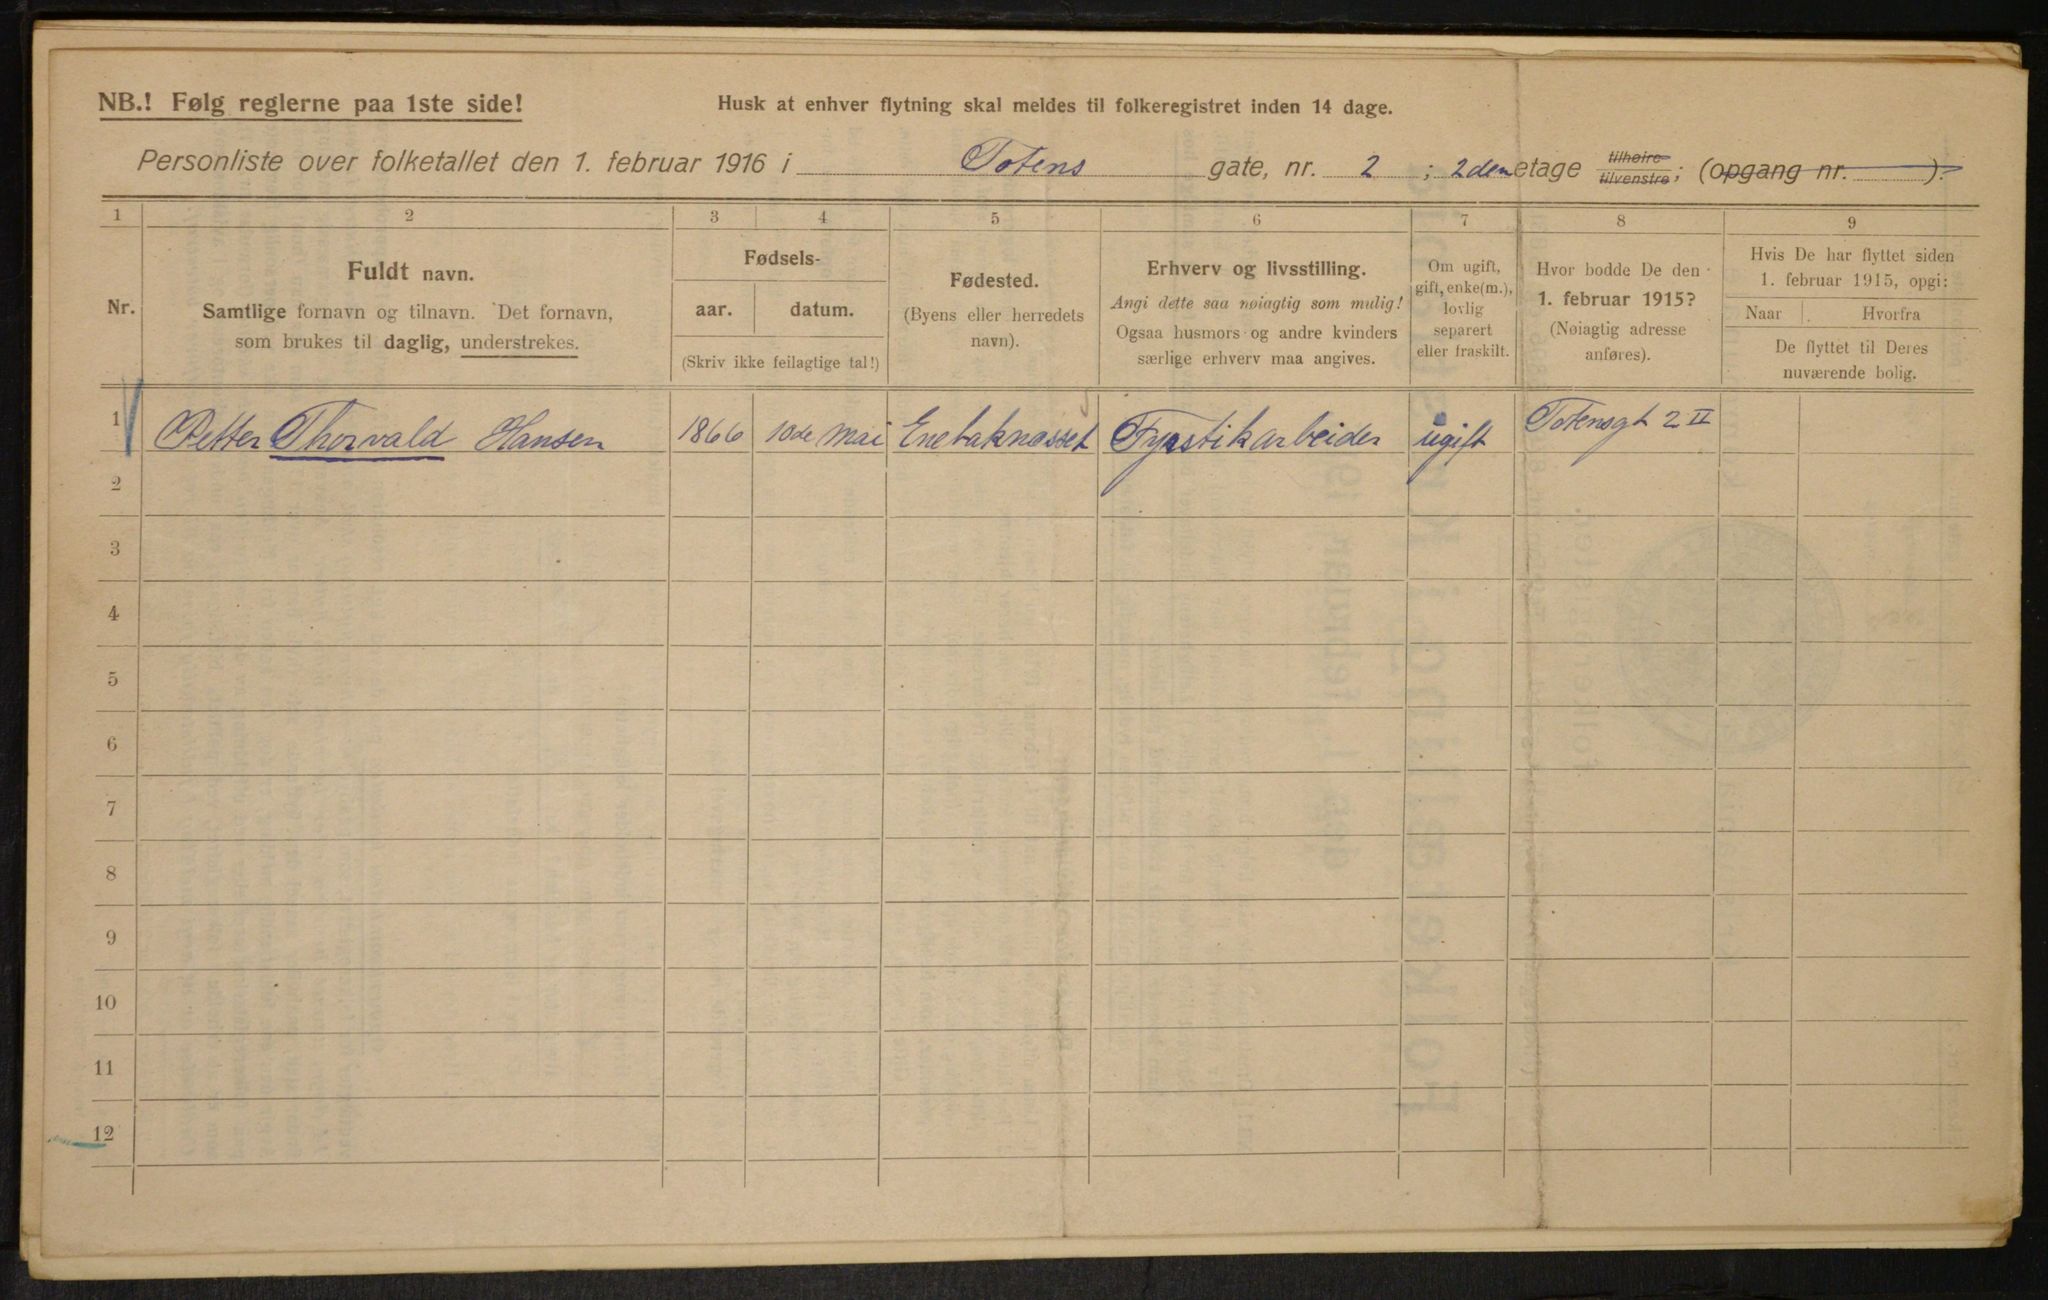 NB.! Følg reglerne paa 1ste side!
Husk at enhver flytning skal meldes til folkeregistret inden 14 dage.
Personliste over folketallet den 1. februar 1916 i Totens gate, nr. 2 ; 2den etage tilhøire tilvenstre; (opgang nr. ).
1 2 3 4 5 6 7 8 9
Nr.
Fuldt navn.
Samtlige fornavn og tilnavn. Det fornavn,
som brukes til daglig, understrekes.
Fødsels-
aar. datum.
(Skriv ikke feilagtige tal!)
Fødested.
(Byens eller herredets
navn).
Erhverv og livsstilling.
Angi dette saa nøiagtig som mulig!
Ogsaa husmors og andre kvinders
særlige erhverv maa angives.
Om ugift,
gift, enke(m.),
lovlig
separert
eller fraskilt.
Hvor bodde De den
1. februar 1915?
(Nøiagtig adresse
anføres).
Hvis De har flyttet siden
1. februar 1915, opgi:
Naar Hvorfra
De flyttet til Deres
nuværende bolig.
1 Petter Thorvald Hansen 1866 10de mai Enebaknæsset Fyrstikarbeider ugift Totensgt 2 II
2
3
4
5
6
7
8
9
10
11
12